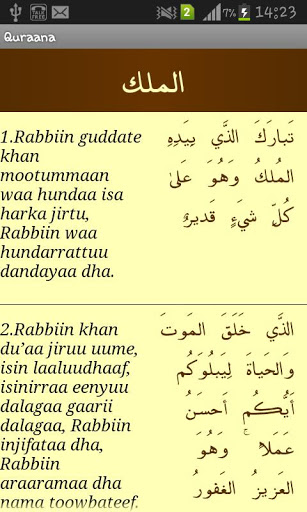 TALK FREE
2
7%
14:23
Quraana
الملك
1.Rabbiin guddate
khan
mootummaan
waa hundaa isa
harka jirtu,
Rabbiin waa
hundarrattuu
dandayaa dha.
تَبارَكَ الذَّي بِيَدِهِ
المُلكُ وَهُوَ عَلىٰ
كُلِّ شَيءٍ قَديرٌ
2.Rabbiin khan
du’aa jiruu uume,
isin laaluudhaaf,
isinirraa eenyuu
dalagaa gaarii
dalagaa, Rabbiin
injifataa dha,
Rabbiin
araaramaa dha
nama toowbateef.
الذَّي خَلَقَ المَوتَ
وَالحَياةَ لِيَبلُوَكُم
أَيُّكُم أَحسَنُ
عَمَلًا ۚ وَهُوَ
العَزيزُ الغَفورُ